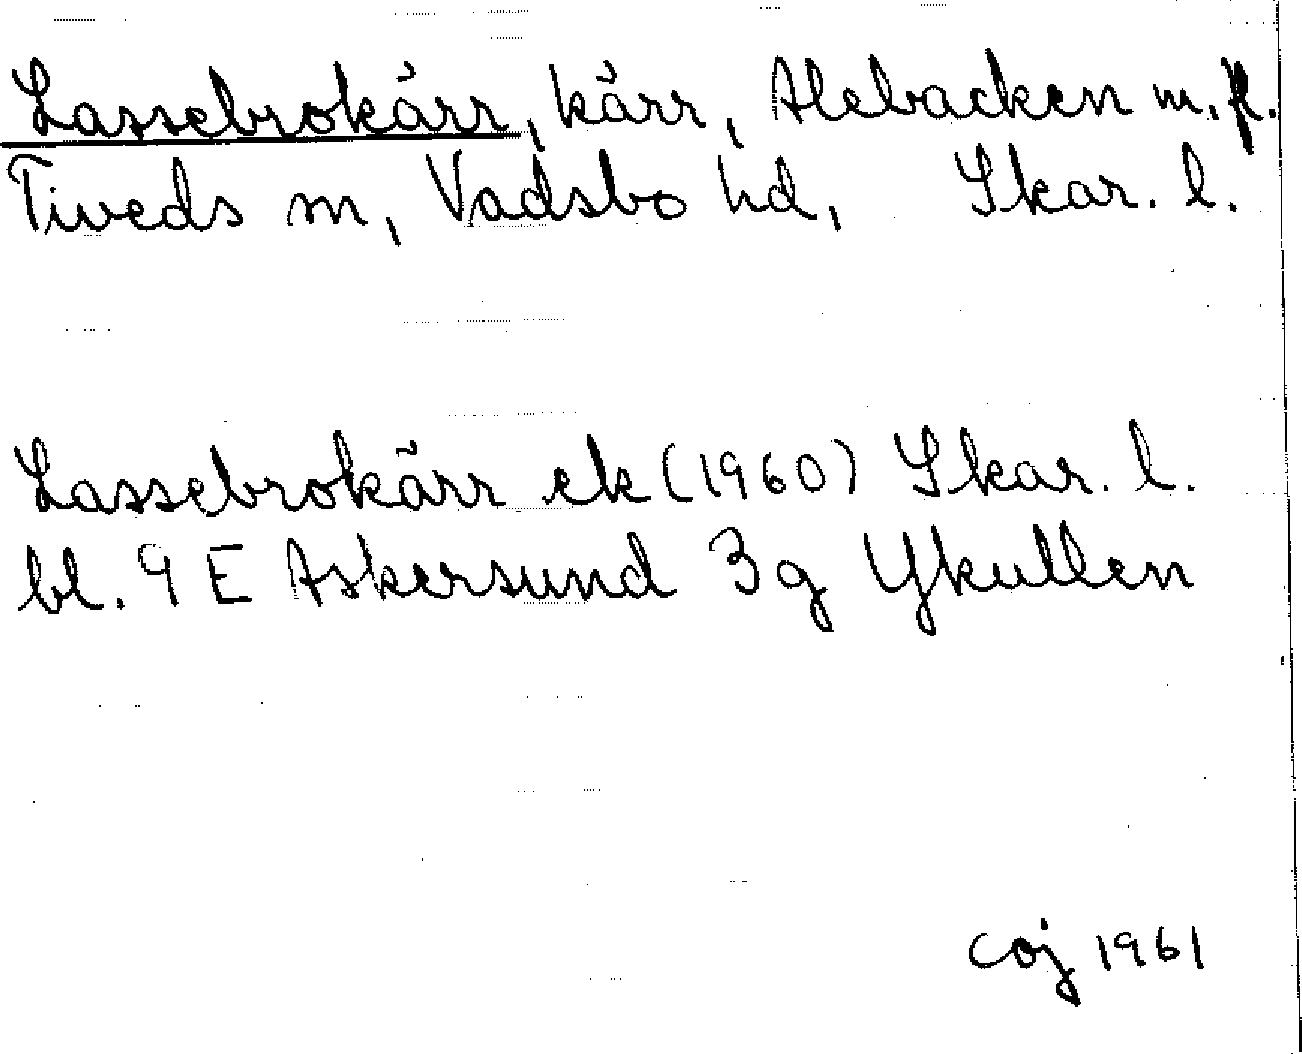 Lassebrokärr, kärr, Alebacken m. fl.
Tiveds sn, Vadsbo hd, Skar. l.
Lassebrokärr ek (1960) Skar. l.
bl. 9 E Askersund 3g Ykullen
coj 1961